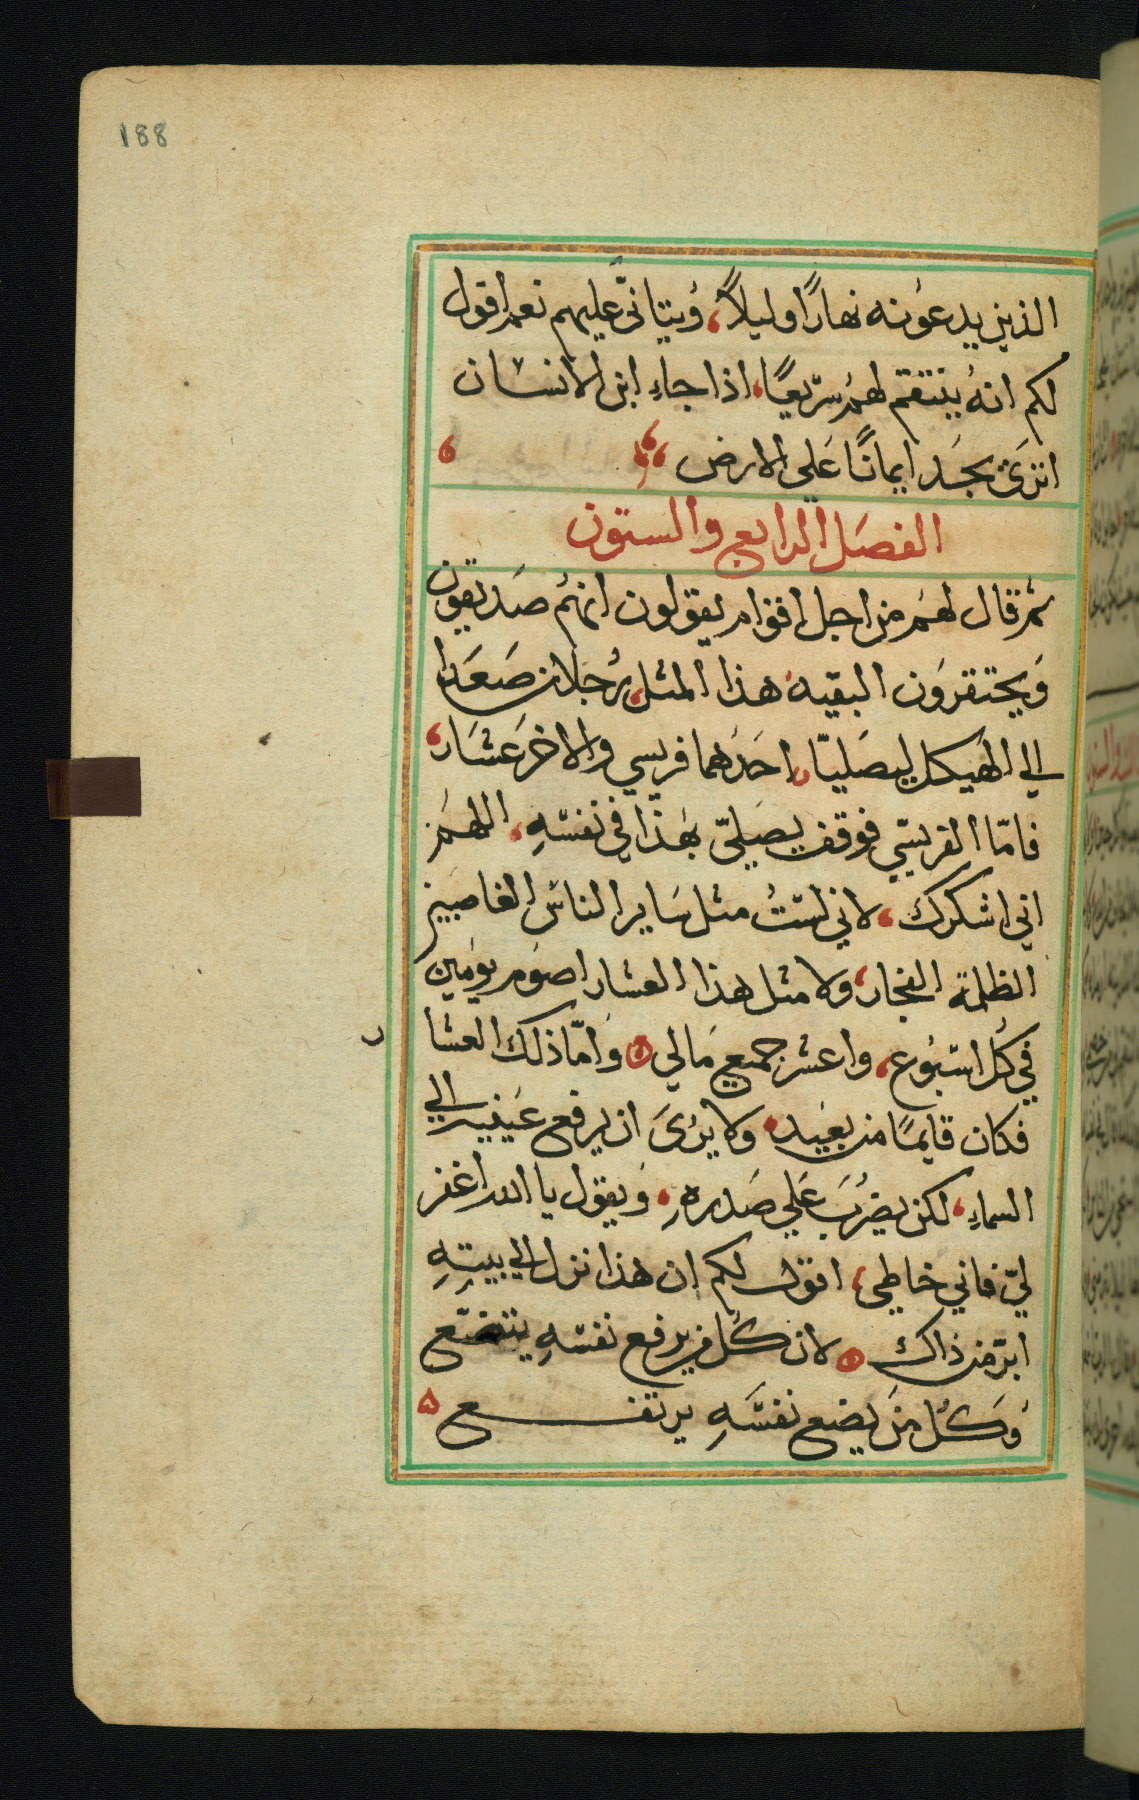 188
الذين يدعونه نهارًا وليلاً، ويتانّى عليهم نعم اقول
لكم انهُ ينتقم لهم سريعًا، اذا جاء ابن الانسان
اترى يجد ايمانًا على الارض
الفصل الرابع والستون
ثم قال لهم من اجل اقوام يقولون انهم صديقون
ويحتقرون البقيه هذا المثل، رجلان صعدا
الي الهيكل ليصليّا، احدهما فريسي والاخر عشار،
فامّا الفريسي فوقف يصلّي بهذا في نفسهِ، اللهم
اني اشكرك، لاني لستُ مثل ساير الناس الغاصبين
الظلمة الفجار، ولا مثل هذا العشار اصوم يومين
في كل اسبوع، واعشر جميع مالي ۞ وامّا ذلك العشا
ر
فكان قايمًا من بعيد، ولا يرى ان يرفع عينيه الي
السماء، لكن يضرب علي صدرهِ، ويقول يا الله اغفر
ليّ فاني خاطي، اقول لكم ان هذا نزل الي بيتهِ
ابرّ من ذاك ۞ لان كل من يرفع نفسهِ يتضع
وكل من يضع نفسهِ يرتفع